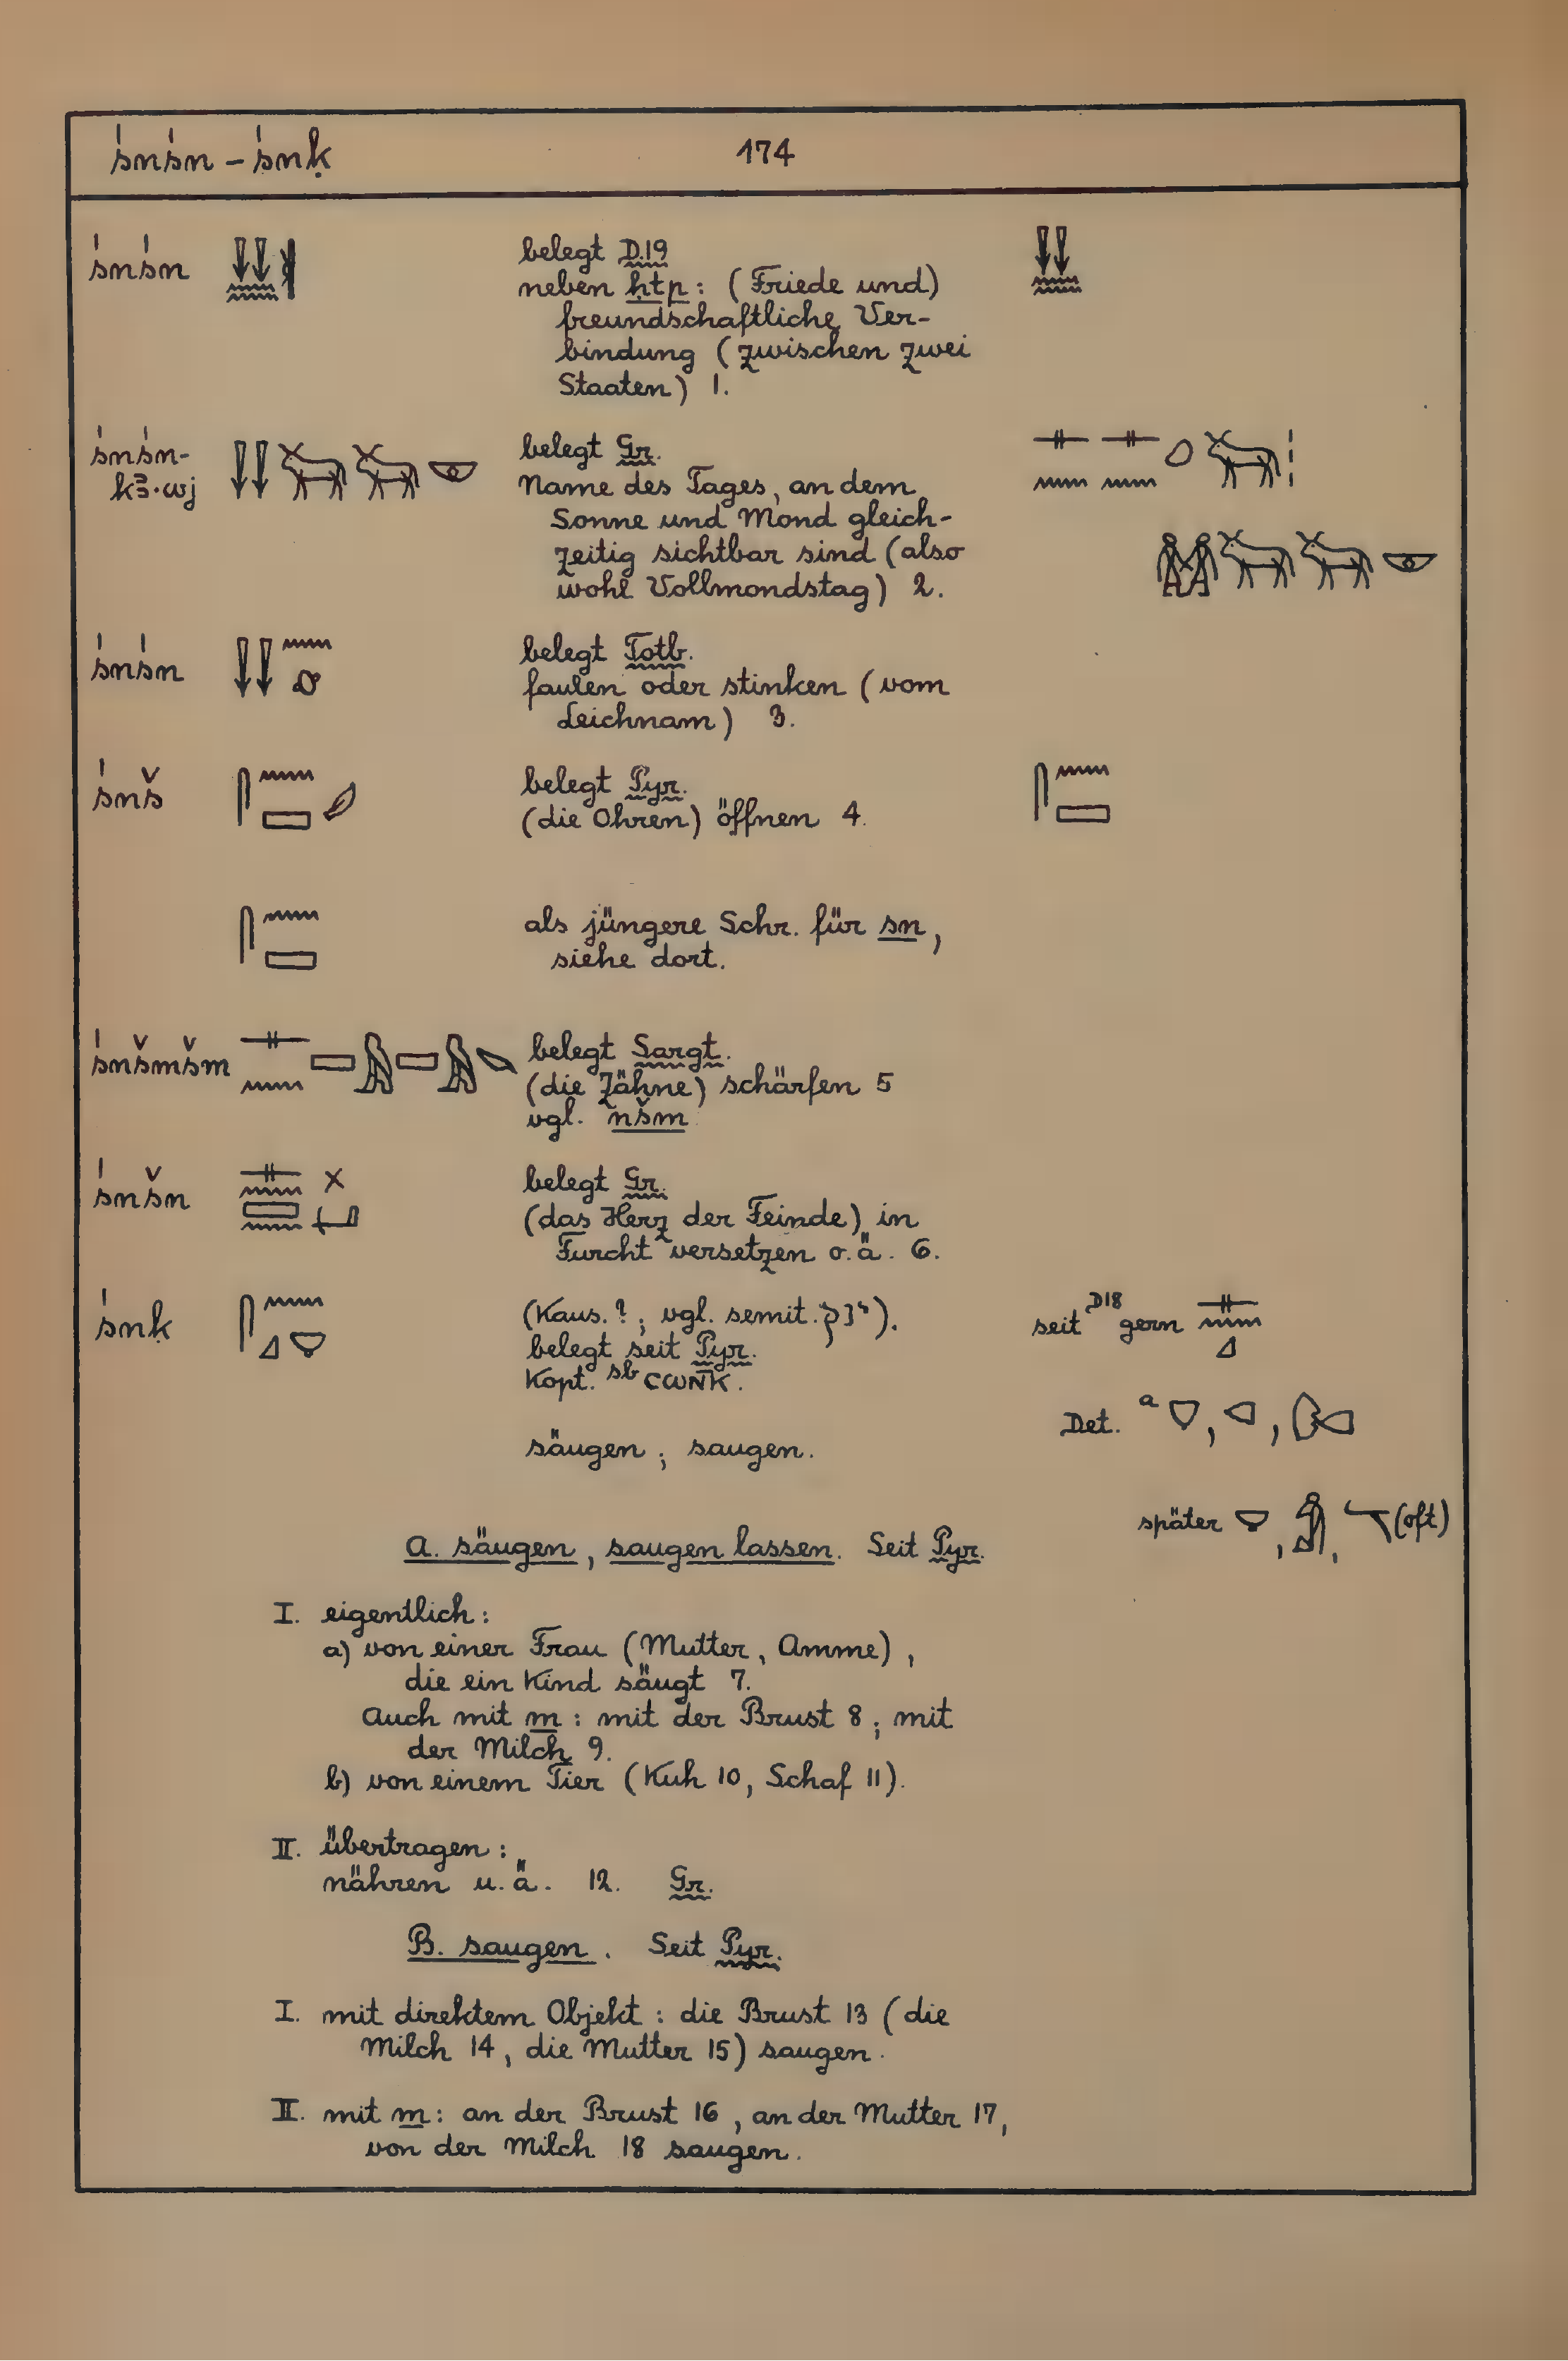 śnśn – śnḳ 174
śnśn belegt D.19
neben ḥtp : (Friede und)
freundschaftliche Ver-
bindung (zwischen zwei
Staaten) 1.
śnśn- belegt Gr.
kꜣ·wj Name des Tages, an dem
Sonne und Mond gleich-
zeitig sichtbar sind (also
wohl Vollmondstag) 2.
śnśn belegt Totb.
faulen oder stinken (vom
Leichnam) 3.
śnš belegt Pyr.
(die Ohren) öffnen 4.
als jüngere Schr. für sn,
siehe dort.
śnšmšm belegt Sargt.
(die Zähne) schärfen 5
vgl. nšm
śnšn belegt Gr.
(das Herz der Feinde) in
Furcht versetzen o.ä. 6.
śnḳ (Kaus.?; vgl. semit. ינק). seit D18 gern
belegt seit Pyr.
Kopt. sb ⲥⲱⲛ̄ⲕ.
Det. a , ,
säugen ; saugen.
später , , (oft)
A. säugen, saugen lassen. Seit Pyr.
I. eigentlich :
a) von einer Frau (Mutter, Amme),
die ein Kind säugt 7.
Auch mit m : mit der Brust 8 ; mit
der Milch 9.
b) von einem Tier (Kuh 10, Schaf 11).
II. übertragen :
nähren u. ä. 12. Gr.
B. saugen. Seit Pyr.
I. mit direktem Objekt : die Brust 13 (die
Milch 14, die Mutter 15) saugen.
II. mit m : an der Brust 16, an der Mutter 17,
von der Milch 18 saugen.